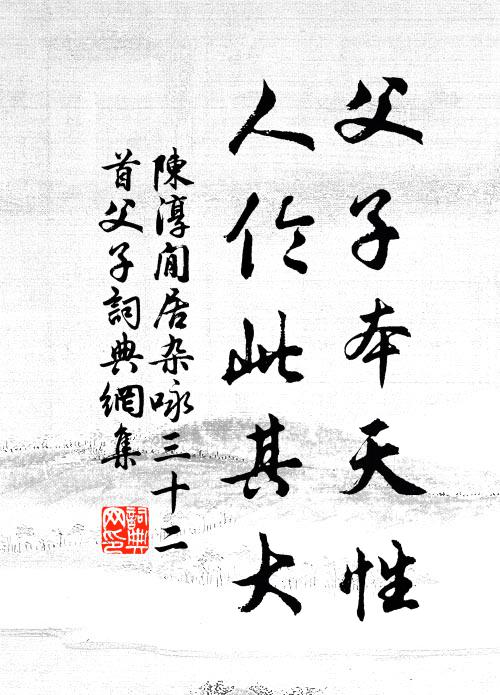 父子本天性
人伦此其大
陳淳閒居杂咏三十二
首父子詞典網集
詞典
网印